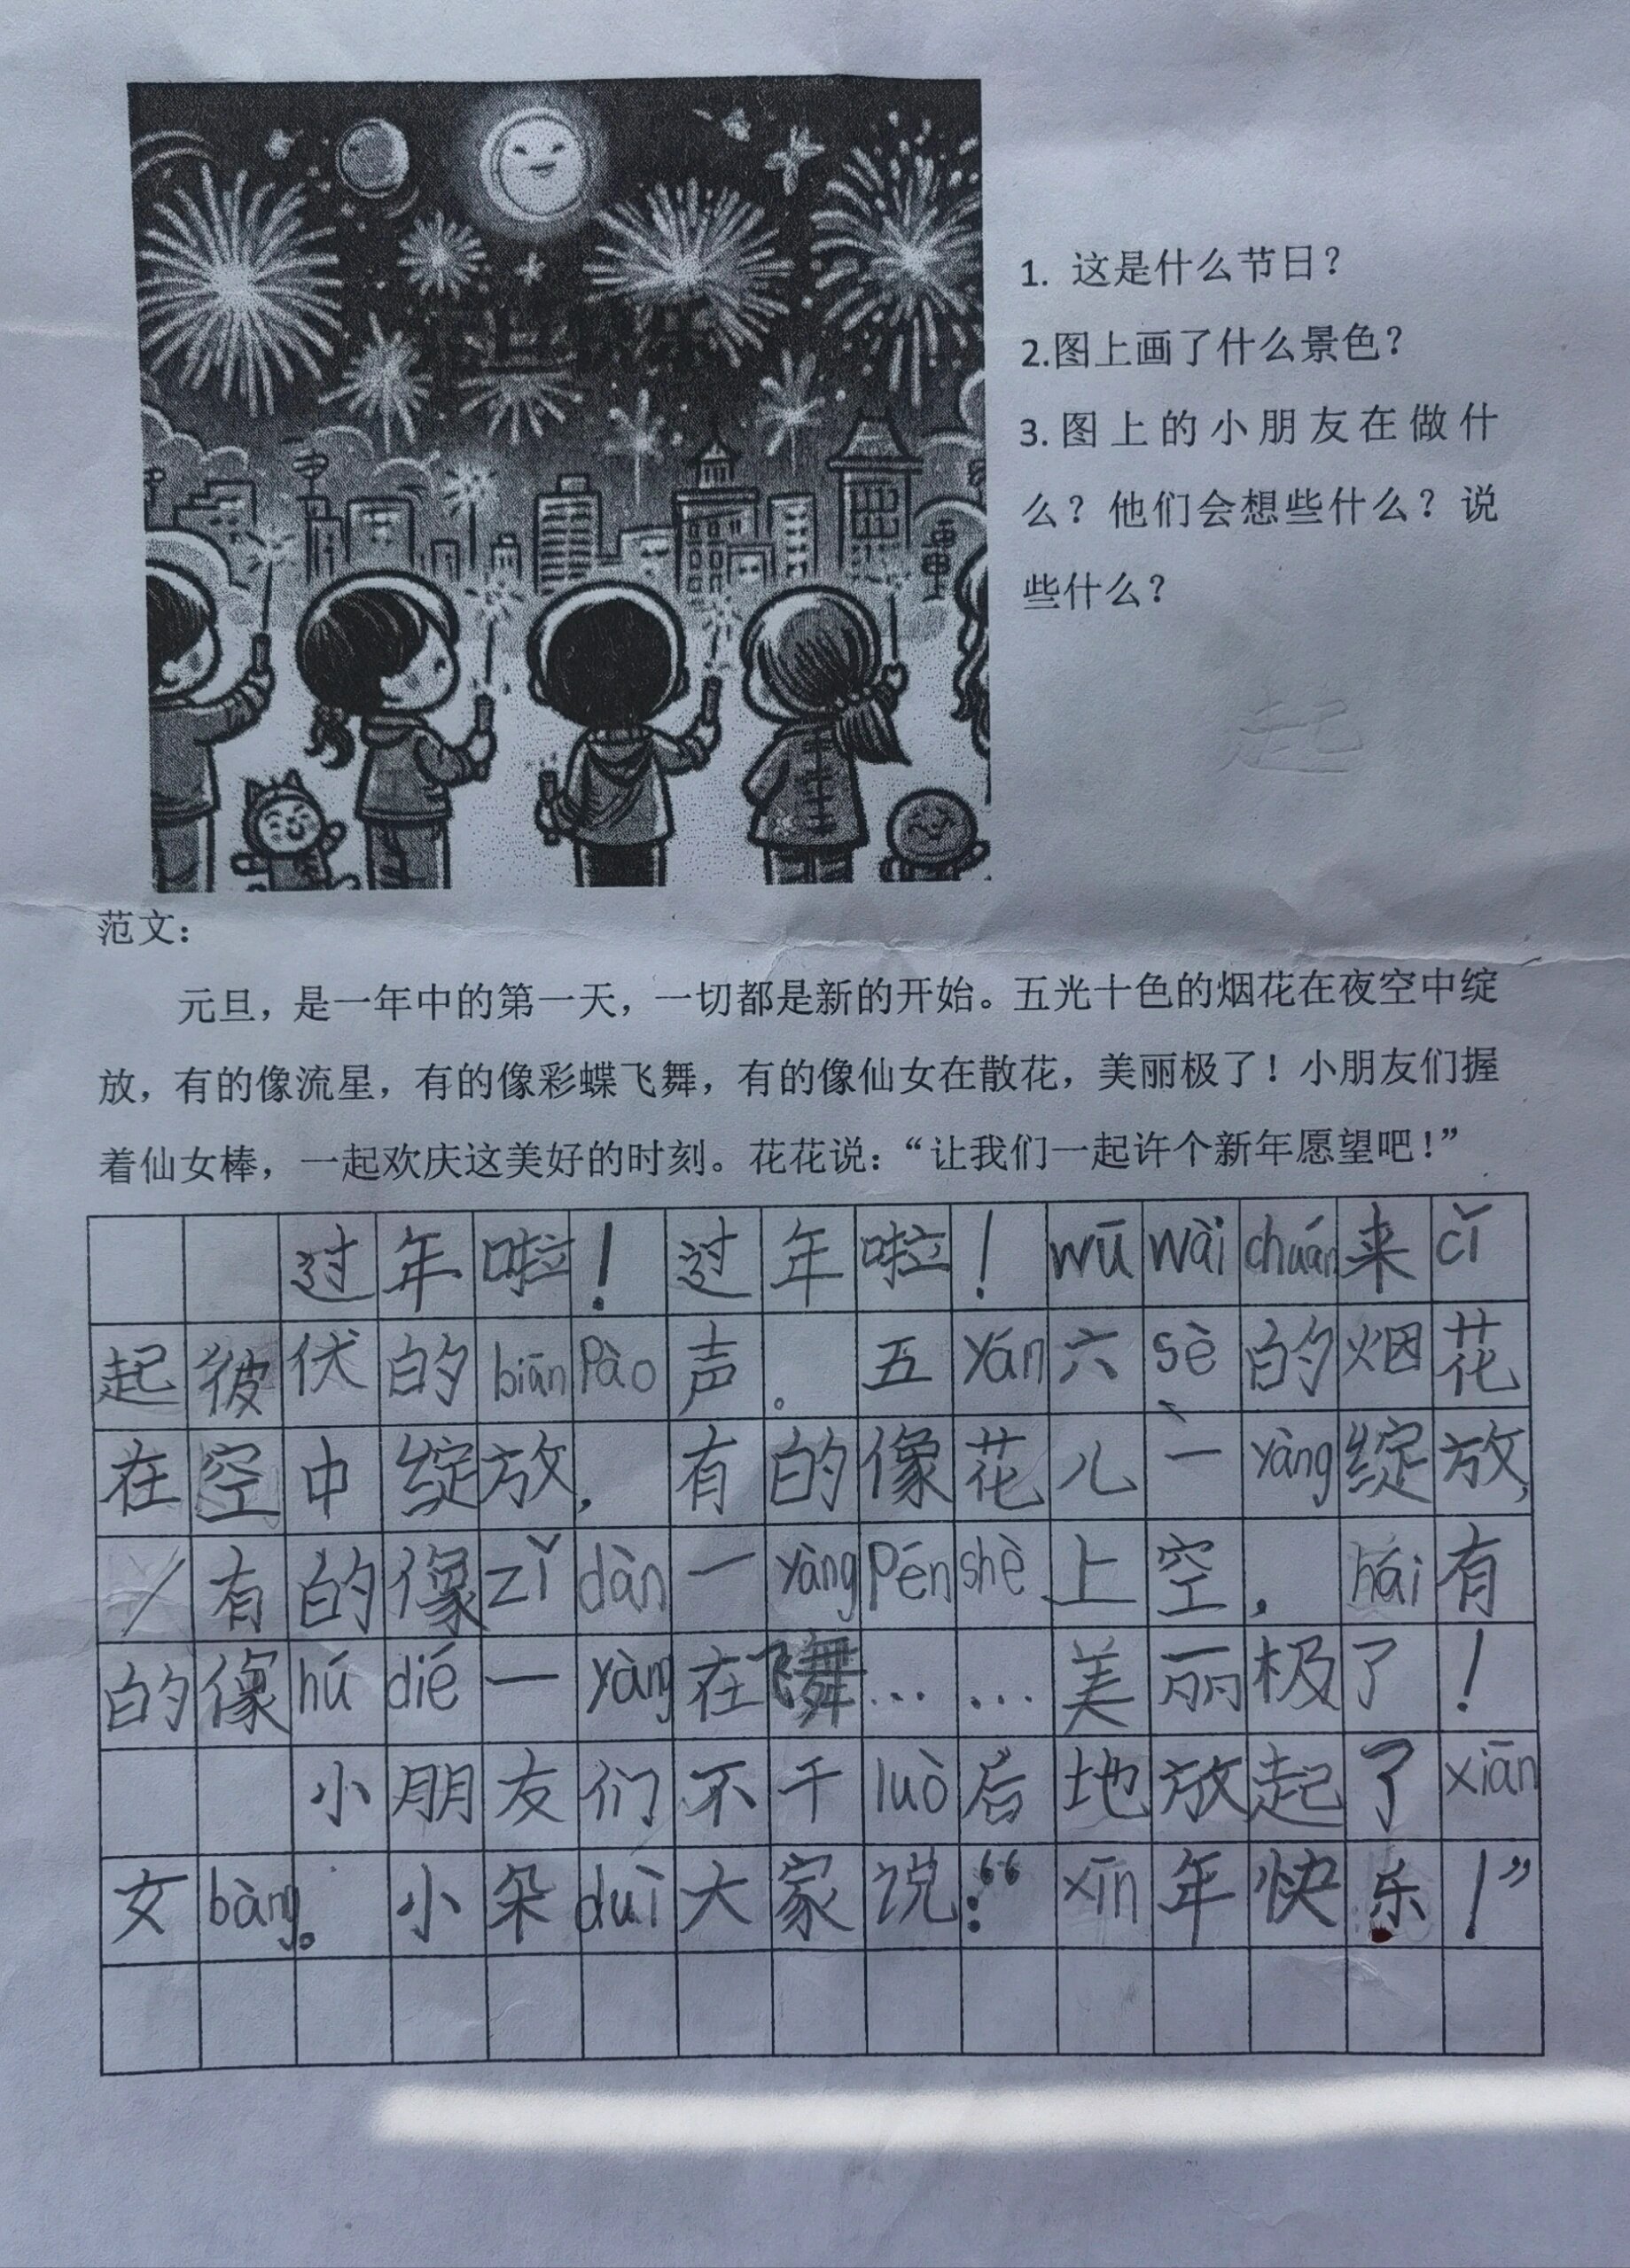 1. 这是什么节日？
2.图上画了什么景色？
3.图上的小朋友在做什
么？他们会想些什么？说
些什么？
起
范文：
元旦，是一年中的第一天，一切都是新的开始。五光十色的烟花在夜空中绽
放，有的像流星，有的像彩蝶飞舞，有的像仙女在散花，美丽极了！小朋友们握
着仙女棒，一起欢庆这美好的时刻。花花说：“让我们一起许个新年愿望吧！”
过年啦！过年啦！wū wài chuán来cǐ
起彼伏的biān pào声。五yán六sè的烟花
在空中绽放，有的像花儿一yàng绽放，
有的像zǐ dàn一yàng pēn shè上空，hái有
的像hú dié一yàng在飞舞……美丽极了！
小朋友们不干luò后地放起了xiān
女bàng。小朵duì大家说：“xīn年快乐！”